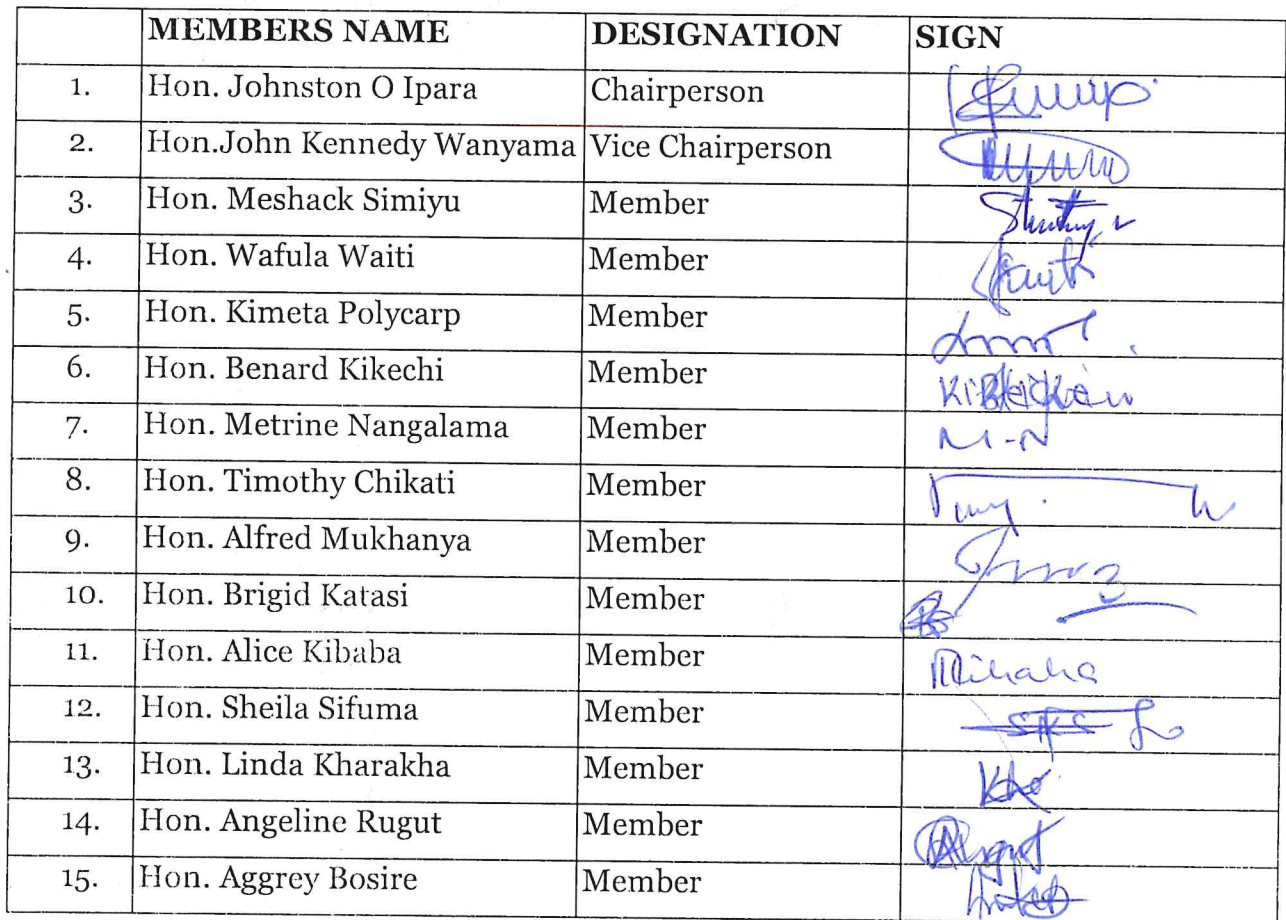 MEMBERS NAME DESIGNATION SIGN
1. Hon. Johnston O Ipara Chairperson
2. Hon.John Kennedy Wanyama Vice Chairperson
3. Hon. Meshack Simiyu Member
4. Hon. Wafula Waiti Member
5. Hon. Kimeta Polycarp Member
6. Hon. Benard Kikechi Member
7. Hon. Metrine Nangalama Member M-N
8. Hon. Timothy Chikati Member
9. Hon. Alfred Mukhanya Member
10. Hon. Brigid Katasi Member
11. Hon. Alice Kibaba Member
12. Hon. Sheila Sifuma Member
13. Hon. Linda Kharakha Member
14. Hon. Angeline Rugut Member
15. Hon. Aggrey Bosire Member